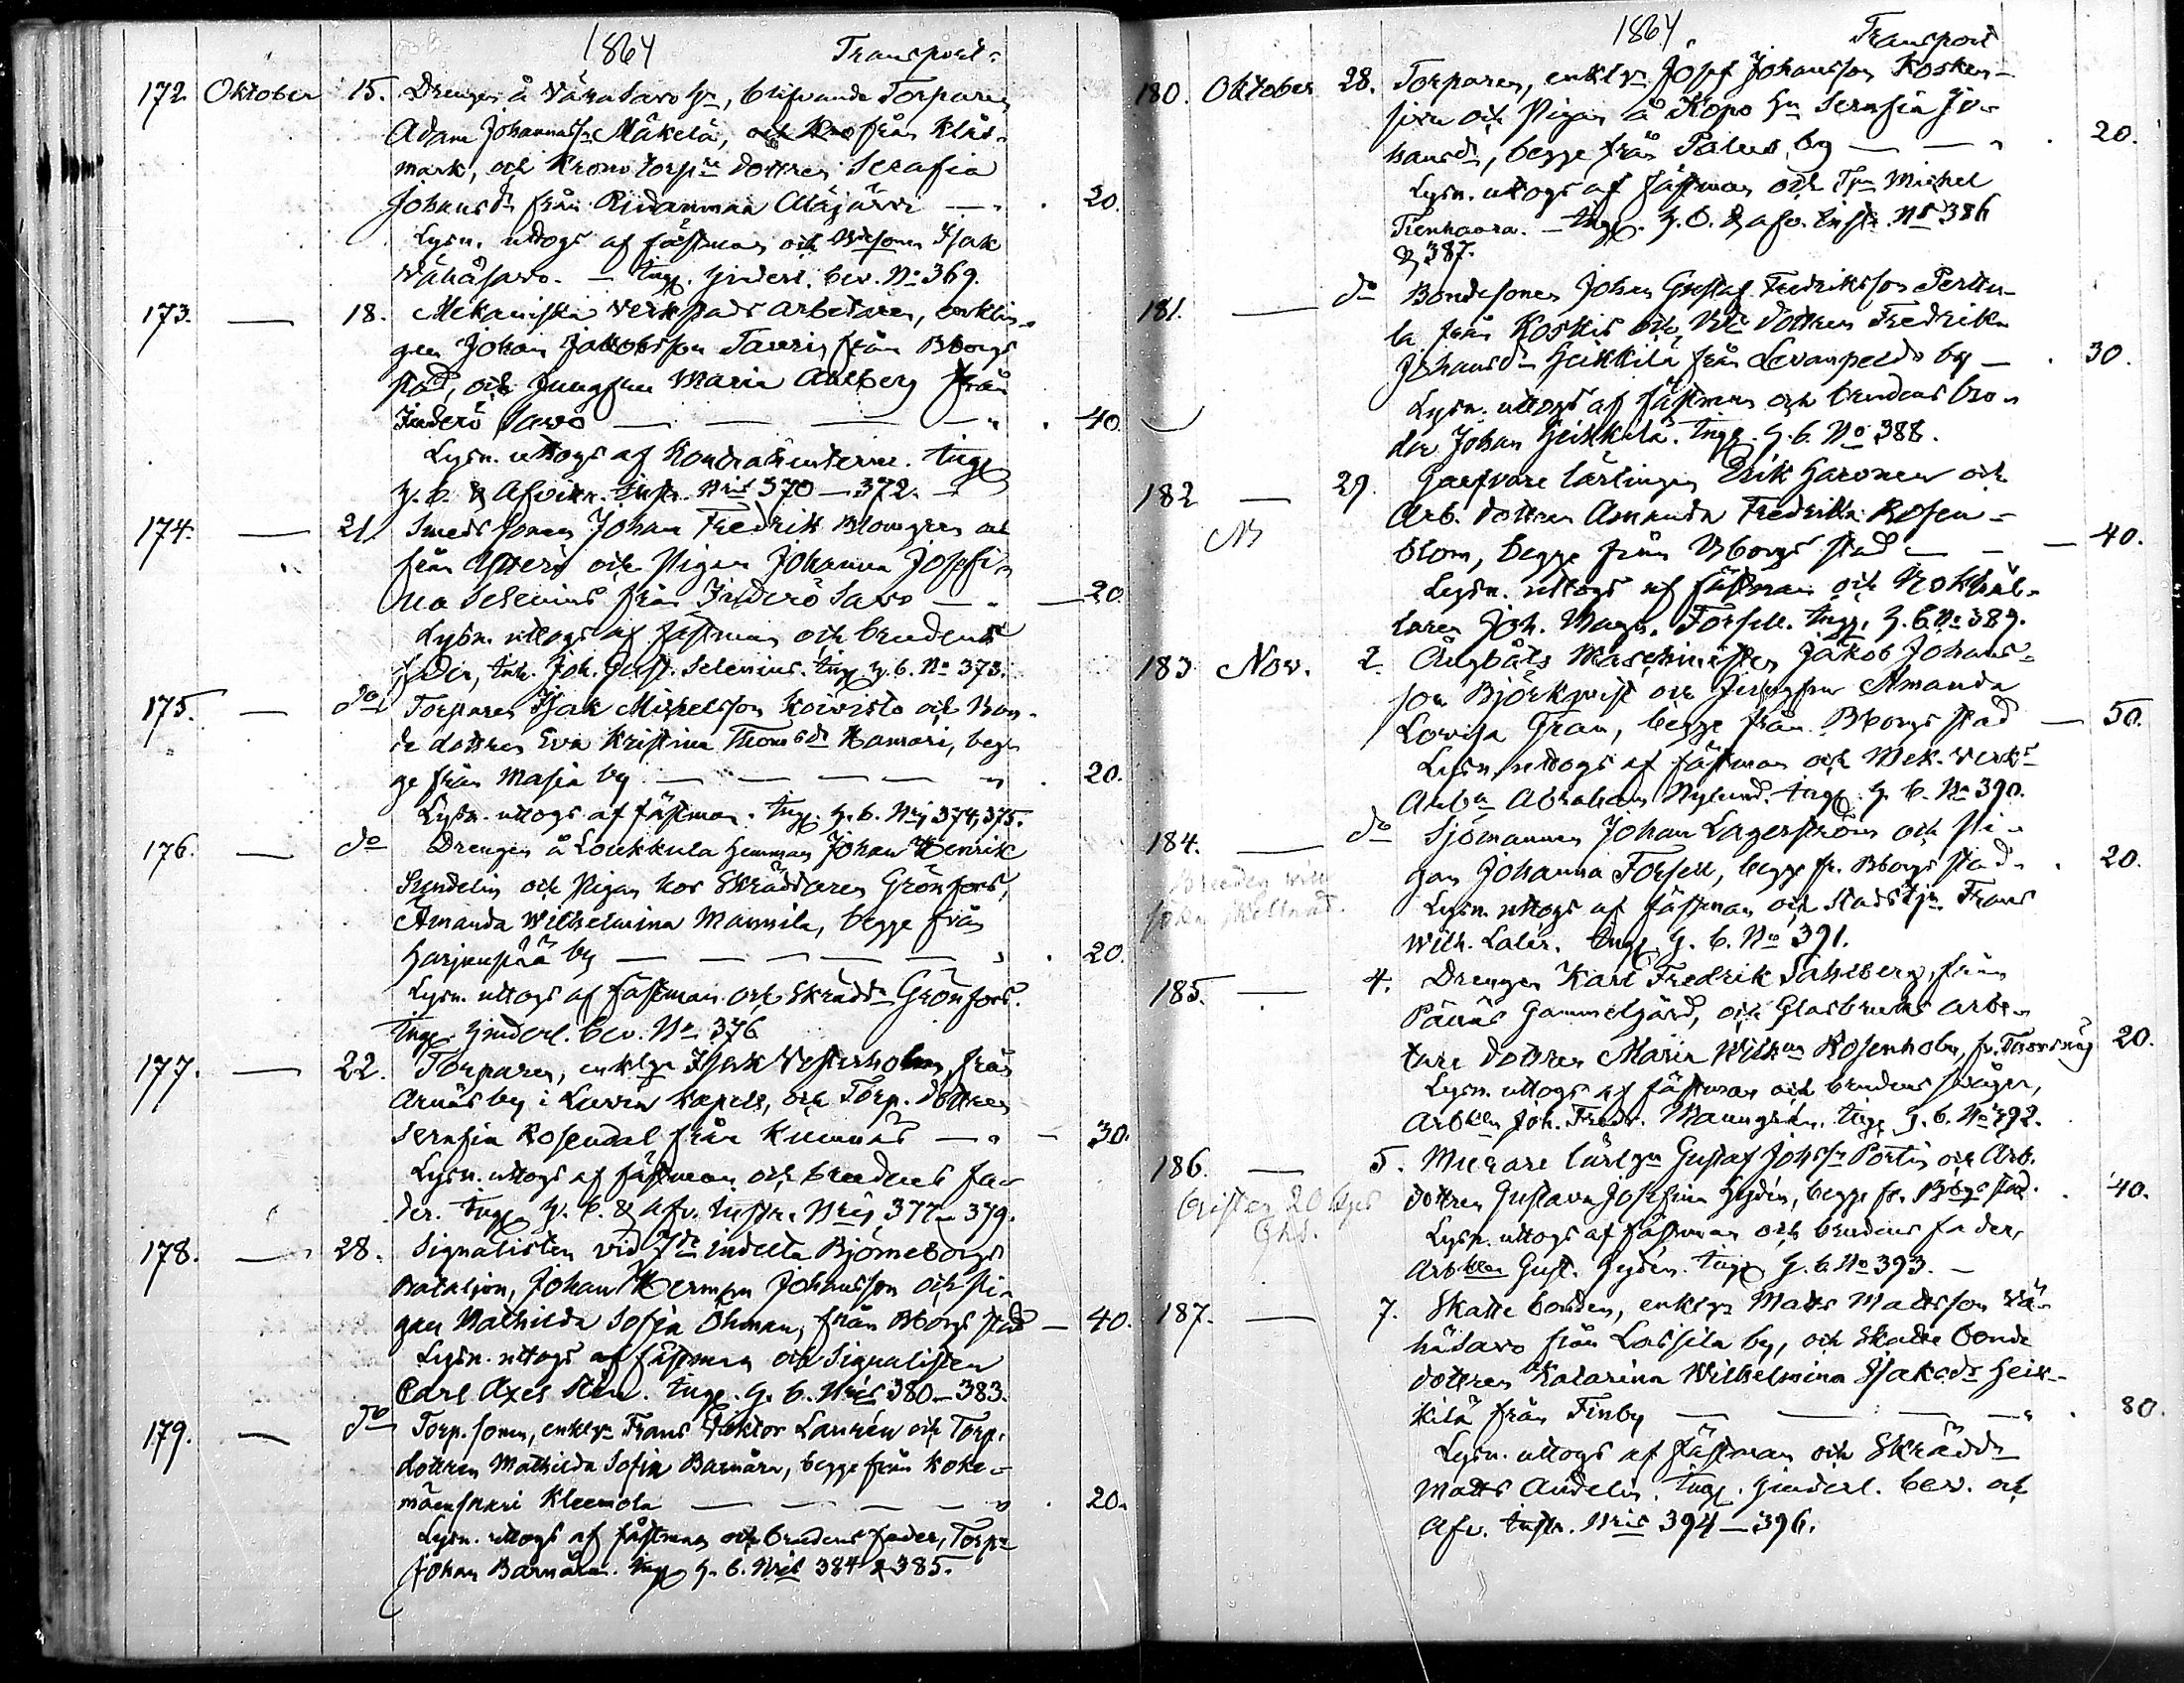 1864 Transport
172. Oktober 15. Drengen å Vähä Savo Hn, blifvande Torparen
Adam Johansson Mäkelä, från Klås-
mark, och Krono torpare dottren Serafia
Johansdr från Rudanmaa Alajärvi — 20.
Lysn. uttogs af fästman och Isak
Vähäsavo. — Ingg. Hinderl. bev. No 369.
173. — 18. Mekaniska Verkstads Arbetaren, enklin-
gen Johan Jakobsson Tavri från Bborgs
stad, och Jungfrun Maria Ahlberg från
Inderö Savo — — — 40.
Lysn. uttogs af Kontrahenterne. Ingg
H. b. & Afvittr. Instr. Nris 370 — 372. —
174. — 21. Smeds sonen Johan Fredrik Blomgren
från Ytterö och Pigan Johanna Josefi-
na Selenius från Inderö Savo — — 20.
Lysn. uttogs af fästman och brudens
fader, Inh. Joh. Gust. Selenius. Ingg H. b. No 373.
175. — do Torparen Isak Mickelsson Koivisto och Bon-
de dottren Eva Kristina Thomsdr Hamari, beg-
ge från Masia by — — — — 20.
Lysn. uttogs af fästman. Ingg. H. b. Nris 374, 375.
176. — do Drengen å Loukkula hemman Johan Henrik
Sundelin och Pigan hos Skräddaren Grönfors,
Amanda Wilhelmina Mannila, begge från
Harjunpää by — — — — 20.
Lysn. uttogs af fästman och Skräddn Grönfors.
Ingg. Hinderl. bev. No 376
177. — 22. Torparen, enklgn Isak Vesterholm, från
Arnäs by i Luvia Kapell, och Torp. dottren
Serafia Rosendal från Kumnäs — 30.
Lysn. uttogs af fästman och brudens fa-
der. Ingg. H. b. & Afv. Instr. Nris 377 — 379.
178. — 28. Signalisten vid 7de indelta Björneborgs
Bataljon, Johan Herman Johansson och Pi-
gan Mathilda Sofia Öhman, från Bborgs stad — 40.
Lysn. uttogs af fästman och Signalisten
Carl Axel Sten. Ingg. H. b. Nris 380 — 383.
179. — do Torp. sonen, enklgn Frans Viktor Laurén och Torp.
dottren Mathilda Sofia Barnärn, begge från Koke-
mäensaari Kleemola — — — — 20.
Lysn. uttogs af fästman och brudens fader, Torpn
Johan Barnärn. Ingg H. b. Nris 384 & 385.
1864. Transport
180. Oktober 28. Torparen, enklgn Josef Johansson Kosken-
och Pigan å Kopo Hn Serafia Jo-
hansdr, begge från Palus by — — 20.
Lysn. uttogs af fästman och Tpn Michel
— Ingg. H. b. & afv. Instr. No 386
& 387.
181. — do Bondesonen Johan Gustaf Fredriksson Perttu-
la från Koskis och Bde dottren Fredrika
Johansdr Heikkilä från Levanpelto by — 30.
Lysn. uttogs af fästman och brudens bro-
der Johan Heikkilä. Ingg. H. b. No 388.
182 — 29. Garfvare lärlingen Erik Haronen och
NB Arb. dottren Amanda Fredrika Rosen-
blom, begge från Bborgs stad — — 40.
Lysn. uttogs af fästman och Bokhål-
laren Joh. Magn. Forsell. Ingg. H. b. No 389.
183 Nov. 2. Ångbåts Maschinisten Jakob Johans-
son Björkqvist och Jungfrun Amanda
Lovisa Gran, begge från Bborgs stad — 50.
Lysn. uttogs af fästman och Mek. Verks
Arbn Abraham Nylund. Ingg. H. b. No 390.
184. — do Sjömannen Johan Lagerström och Pi-
gan Johanna Forsell, begge fr. Bborgs stad. 20.
Bruden
Lysn. uttogs af fästman och Stadstjn. Frans
Wilh. Lalér. Ingg. H. b. No 391.
185. — 4. Drengen Karl Fredrik Sahlberg, från
Påmas Gammelgård, och Glasbruks arbe-
tare dottren Maria Wilhna Rosenholm, fr. Thorsnäs 20.
Lysn. uttogs af fästman och brudens svåger,
Arbkln Joh. Fredr. Manngrén. Ingg. H. b. No 392.
186. — 5. Murare lärlgn Gustaf Johssn Portin och Arb.
dottren Gustava Josefina Hydén, begge fr. Bborgs stad. 40.
Lysn. uttogs af fästman och brudens fader,
Arbkln Gust. Hydén. Ingg. H. b. No 393. —
187. — 7. Skatte bonden, enklgn Matts Mattsson Vä-
häsavo från Lassila by, och Skatte bonde
dottren Katarina Wilhelmina Isaksdr Heik-
kilä från Finby — — — 80.
Lysn. uttogs af fästman och Skräddn
Matts Andelin. Ingg. Hinderl. bev. och
Afv. Instr. Nris 394 — 396.